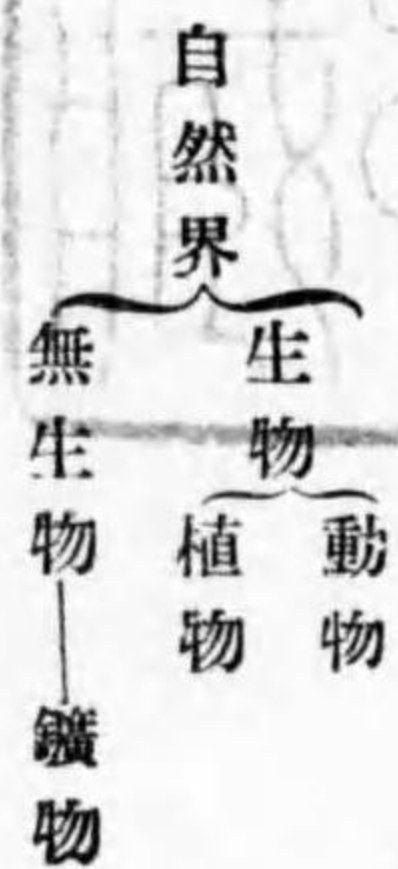 自然界
生物
動物
植物
無生物
鑛物